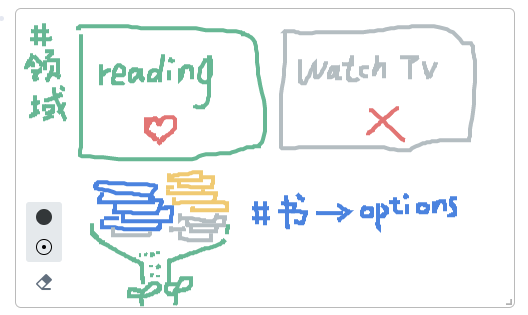 #领域
reading
Watch Tv
#书→options